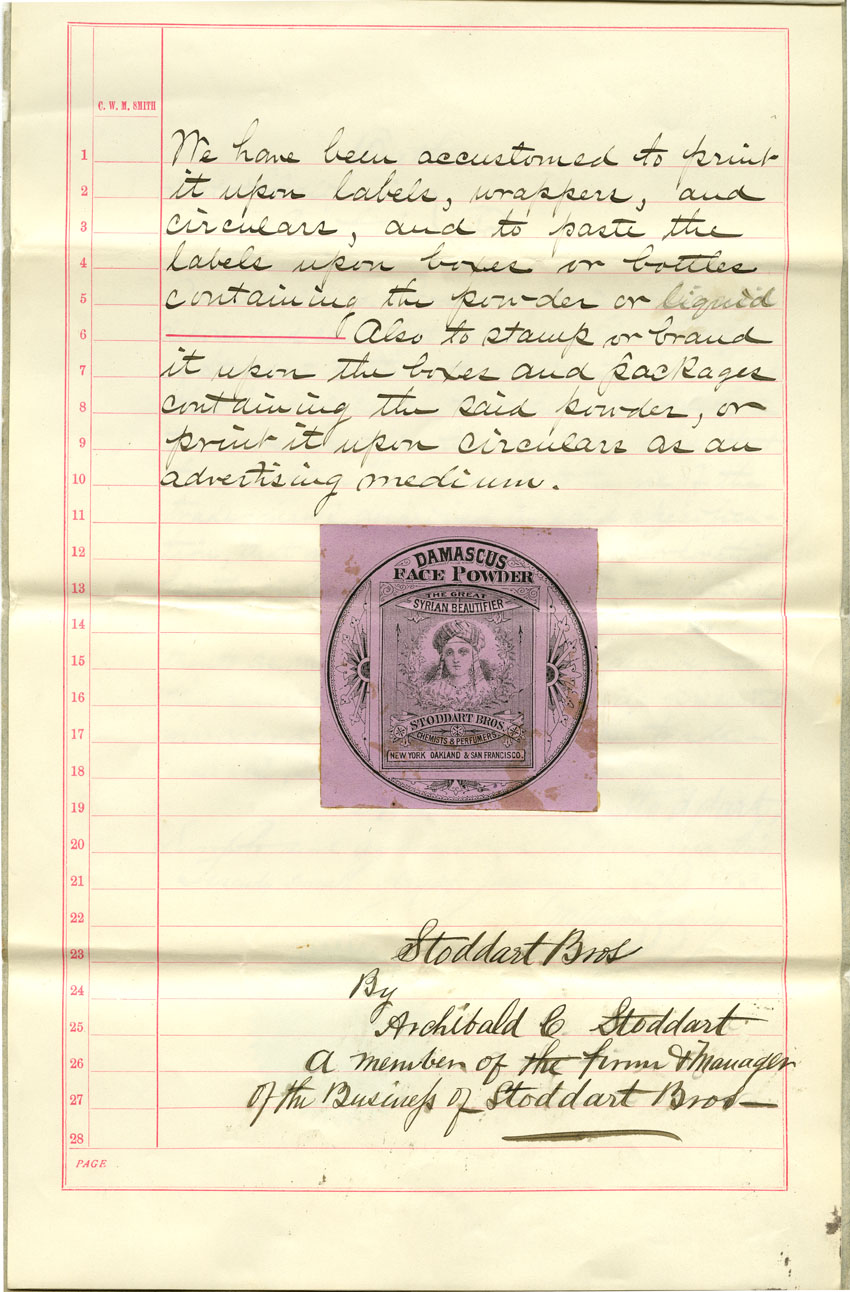 C. W. M. SMITH
1 We have been accustomed to print
2 it upon labels, wrappers, and
3 circulars, and to paste the
4 labels upon boxes or bottles
5 containing the powder or liquid
6 Also to stamp or brand
7 it upon the boxes and packages
8 containing the said powder, or
9 print it upon circulars as an
10 advertising medium.
11
12 DAMASCUS
FACE POWDER
THE GREAT
13 SYRIAN BEAUTIFIER
14
15
16
STODDART BROS.
17 CHEMISTS & PERFUMERS.
NEW YORK OAKLAND & SAN FRANCISCO.
18
19
20
21
22
23 Stoddart Bros
24 By
25 Archibald C Stoddart
26 A member of the firm & Manager
27 of the Business of Stoddart Bros
28
PAGE